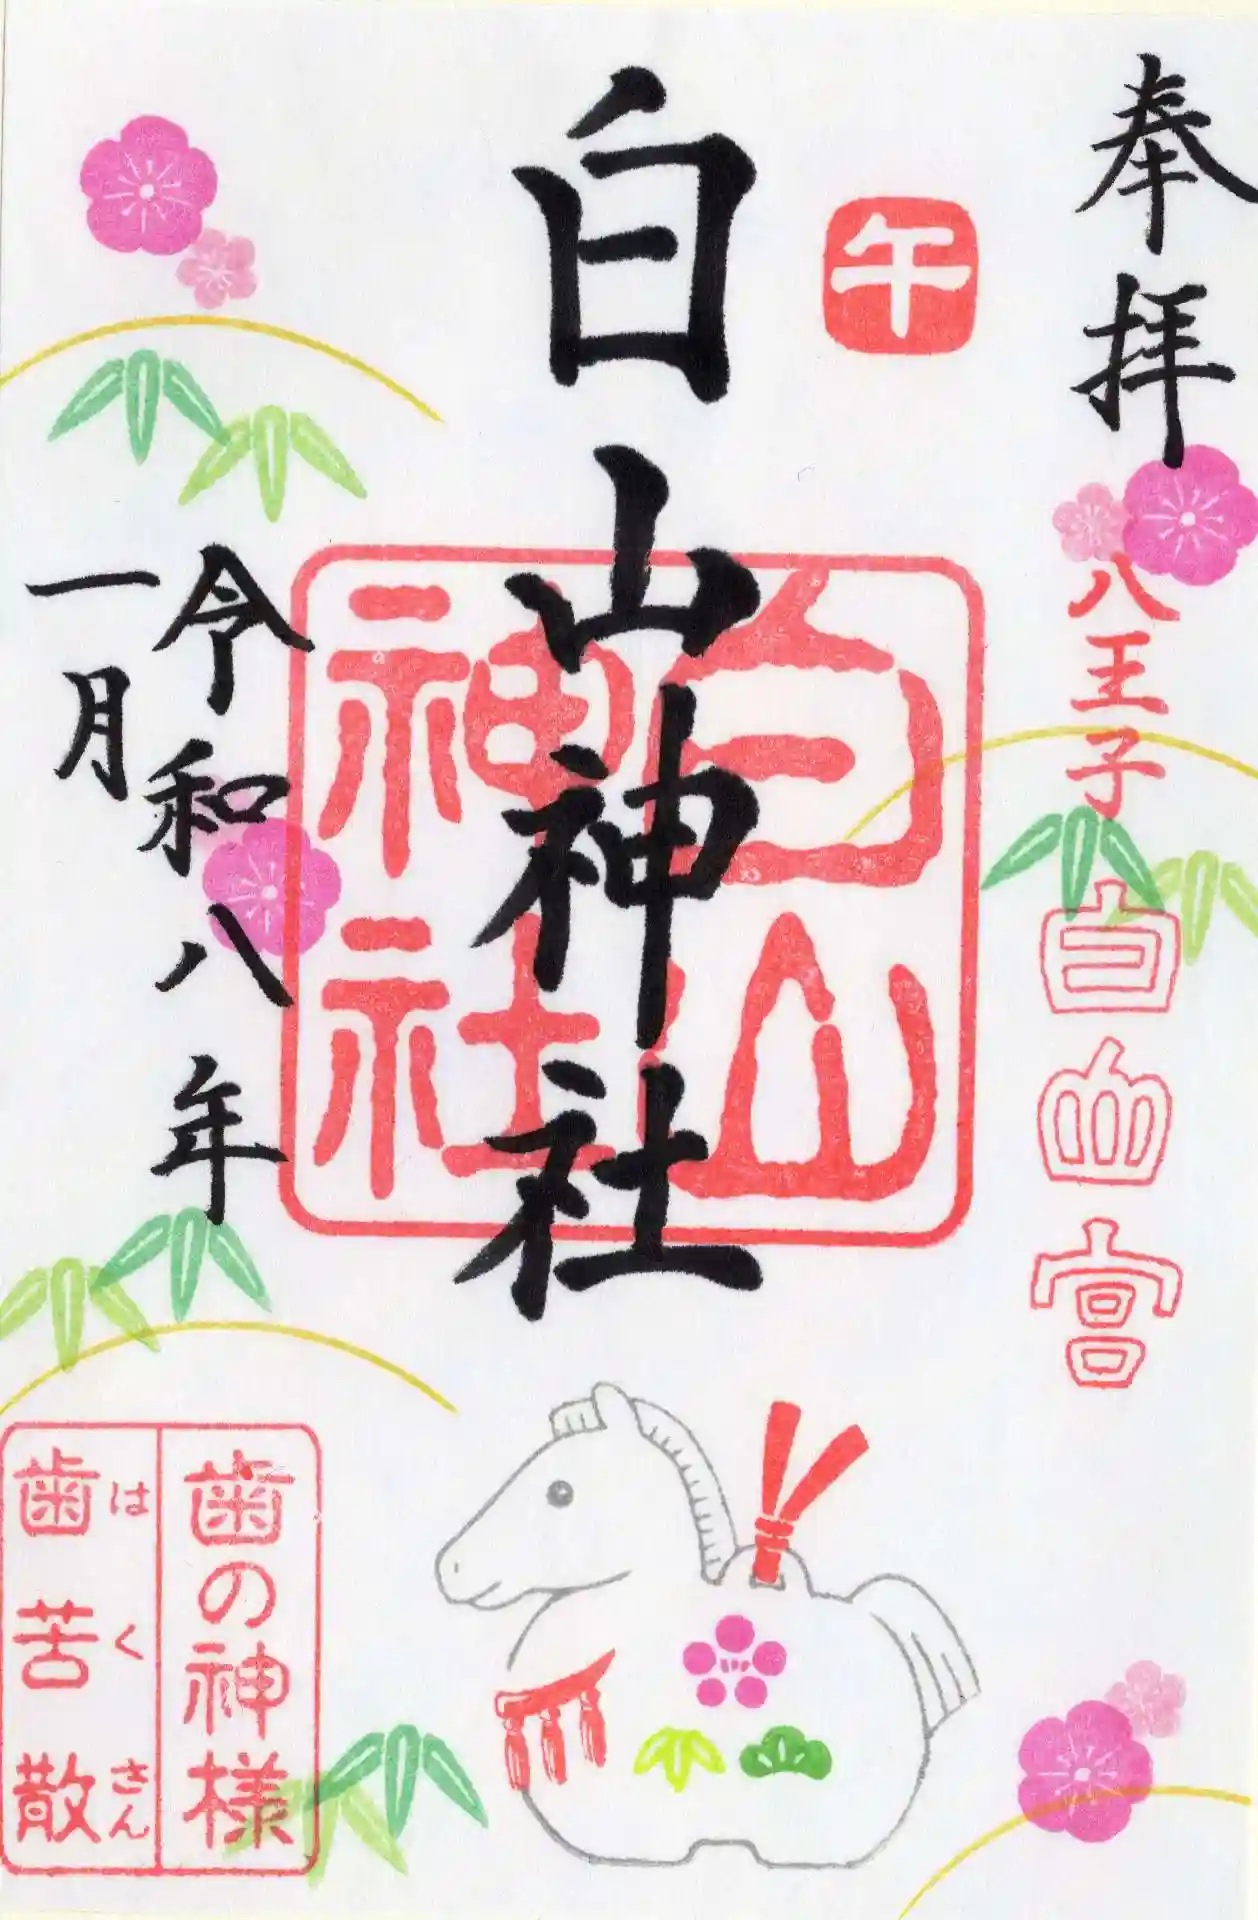 奉拝
八王子
白山宮
午
白山神社
白山
神社
令和八年
一月
歯の神様
はくさん
歯苦散